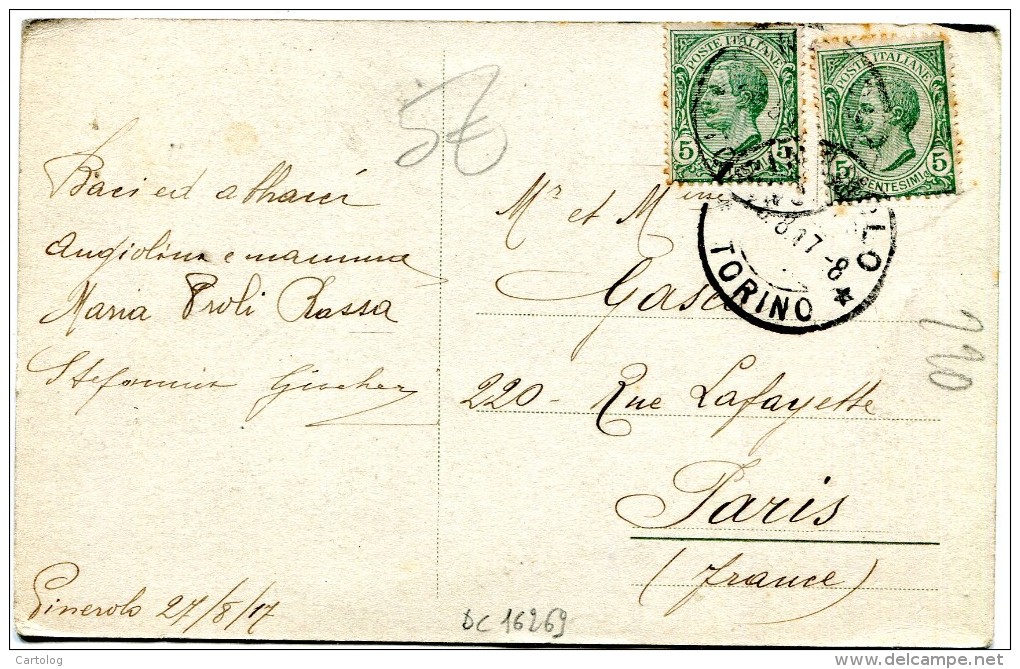 Baci ed abbracci
Angiolina e mamma
Maria Proli Rossa
Stefania
Pinerolo 27/8/17
5
Mr et Mme
220 - Rue Lafayette
Paris
(France)
POSTE ITALIANE
5 5
CENTESIMI
POSTE ITALIANE
5 5
CENTESIMI
8.17-8
TORINO
220
DC 16269
Cartolog
delcampe.net